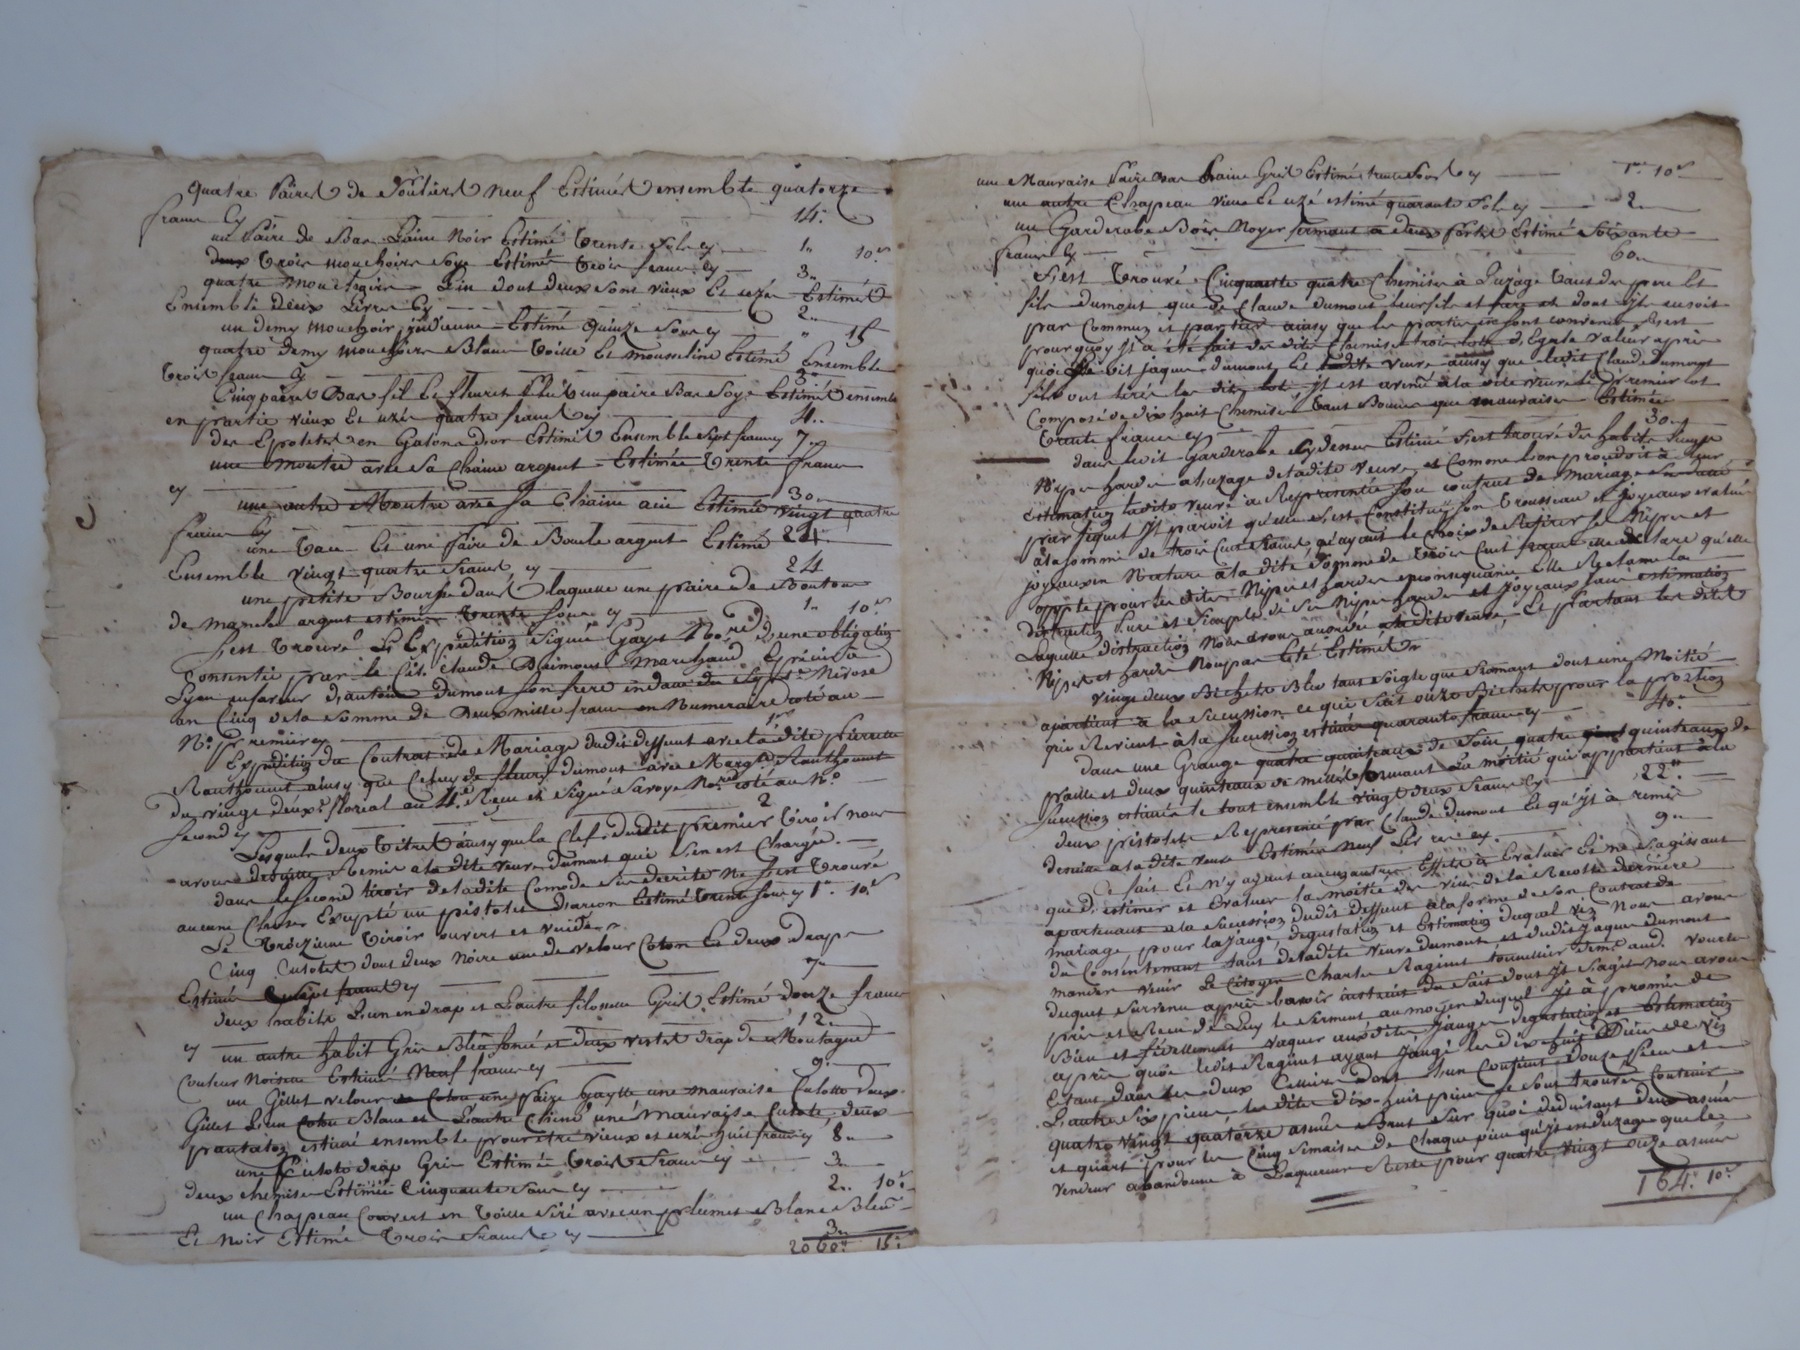 quatre paires de souliers neuf Estimés ensemble quatorze
francs Cy 14..
un paire de Bas Laine Noir Estimé trente sols cy 1.. 10.s
deux trois mouchoirs soye Estimés trois francs cy 3..
quatre mouchoirs Lin dont deux sons vieux Et uzés Estimés
Ensemble deux Livres Cy 2..
un demy mouchoir indienne Estimé Quinze sous cy " 15
quatre demy mouchoirs Blanc toille Et mousseline Estimé Ensemble
trois francs Cy 3..
Cinq paires Bas fil Et fleuret plus un paire Bas Soye Estimés ensemble
en partie vieux Et uzés quatre francs cy 4..
des Epolettes en Galons d'or Estimés Ensemble sept francs 7..
une montre avec sa Chaine argent Estimée trente francs
cy 30..
une autre Montre avec sa Chaine acié Estimée vingt quatre
francs Cy 24..
une tace Et une paire de Boucle argent Estimé
Ensemble vingt quatre francs cy 24
une petite Bourse dans laquelle une paire de Boutons
de manche argent estimée trente sous cy 1.. 10.s
s'est trouvé L'Expedition signée Gayet No.re d'une obligation
Consentie par le Cit. Claude Dumont Marchand Epicier à
Lyon en faveur d'antoine Dumont son frere en date du Nivose
an Cinq de la somme de Deux mille francs en Numeraire coté au
N.o premier cy 1.er
Expedition du Contrat de Mariage dudit deffunt avec la dite pierrette
ainsy que Celuy de fleury Dumont avec Marg.te
du vingt deux floreal an 4.e Reçu et signé Savoye No.re coté au N.o
second cy 2
Lesquels deux titres ainsy que la Clef dudit premier tiroir nous
avons Remis a la dite veuve dumont qui s'en est Chargée.
dans le second tiroir de ladite Comode sus decrite ne s'est trouvé
aucune Choses Excepté un pistolet d'arçon Estimé trente sous cy 1.. 10.s
Le troizieme tiroir ouvert et vuide
Cinq Culotes dont deux Noire une de velour Coton Et deux drap
Estimés sept francs cy 7..
deux habits L'un en drap et L'autre filoselle Gris Estimé douze francs
cy 12..
un autre habit Gris Bleu foncé et deux vestes drap de Montagne
Couleur Noisette Estimés Neuf francs cy 9..
un Gillet velour Coton une paire une mauvaise Culotte deux
Gillet L'un Coton Blanc et L'autre Chiné une Mauvaise Culote deux
pantalon estimé ensemble pour être vieux et uzés huit francs cy 8..
une Culote drap Gris Estimée trois francs cy 3..
deux chemises Estimée Cinquante sous cy 2.. 10.s
un Chapeau Couvert en toille Ciré avec un plumet Blanc Bleu
Et Noir Estimé trois francs cy 3..
2060.. 15.s
une Mauvaise paire Bas Laine Gris Estimée trente sous cy 1.. 10.s
un autre Chapeau vieux Et uzé estimé quarante sols cy 2..
un Garderobe Bois Noyer fermant a deux portes Estimé soixante
francs Cy 60..
s'est trouvé Cinquante quatre Chemises à L'uzage tant du pere Et
fils dumont que de Claude dumont leur fils et dont il en soit
par Commun et ainsy que les parties en sont convenu. C'est
pourquoy il a été fait des dites Chemises trois lots d'Egale valeur après
quoi Ledit jaques dumont, Et Ladite veuve ainsy que ledit Claude dumont
fils ont tirés les dits lots. Il est avenu à la dite veuve le premier lot
Composé de dix huit Chemises tant Bonnes que mauvaises Estimées
trente francs cy 30..
dans ledit Garderobe Cy dessus Estimé s'est trouvé des habits Linge
Nipes hardes a l'uzage de ladite veuve, et Comme L'on procedoit a Leur
Estimation ladite veuve a Représentée son contrat de Mariage
par lequel il paroit qu'elle s'est Constituée son trousseau et joyeaux evalué
à la somme de trois Cent francs, qu'ayant le Choix de Retirer ses Nipes et
joyeaux en Nature ou la dite somme de trois Cent francs elle declare qu'elle
oppte pour les dites Nipes et hardes en consequance Elle Reclame la
distraction Pure et Simple de ses Nipes hardes et joyeaux sans estimation
Laquelle distraction Nous avons accordé a ladite veuve, Et partant les dites
Nipes et hardes Nonpas Eté Estimées
vingt deux Bichets Bled tant seigle que froment dont une Moitié
apartient à la succession ce qui fait onze Bichets pour la portion
qui Revient à la succession estimé quarante francs cy 40..
dans une Grange quatre quinteaux de foin quatre quinteaux de
paille et deux quinteaux de millet formant La moitié qui appartient a la
succession estimée le tout ensemble vingt deux francs Cy 22..
deux pistolets Representé par Claude dumont Et qu'il à remis
de suite a ladite veuve Estimés Neuf Livres cy 9..
de fait Et n'y ayant aucun autres Effets à Evaluer Et ne s'agissant
que d'estimer et Evaluer la moitié du vin de la Recolte derniere
apartenant a la succession dudit deffunt a la forme de son Contrat de
mariage pour la jauge, degustation et Estimation duquel vin Nous avons
du Consentement tant de ladite veuve dumont, et dudit jaques dumont
mander venir Le Citoyen Charles Raginet tonnellier aud. vourles
duquel survenu après L'avoir instruit du fait dont il s'agit Nous avons
pris et Reçu de Luy le serment au moyen duquel il a promis de
Bien et fidellement vaquer auxdites jauges degustation et Estimation
après quoi ledit Raginet ayant jaugé les dix huit pieces de vin
Etant dans les deux Celliers dont L'un Contient douze pieces et
L'autre six pieces les dites dix-huit pieces se sont trouvés Contenir
quatre vingt quatorze asnées Brut sur quoi deduisant deux asnées
et quart pour les Cinq simaises de Chaque piece qu'il est en uzage que le
vendeur abandonne à L'aquereur Reste pour quatre vingt onze asnées
164.. 10.s